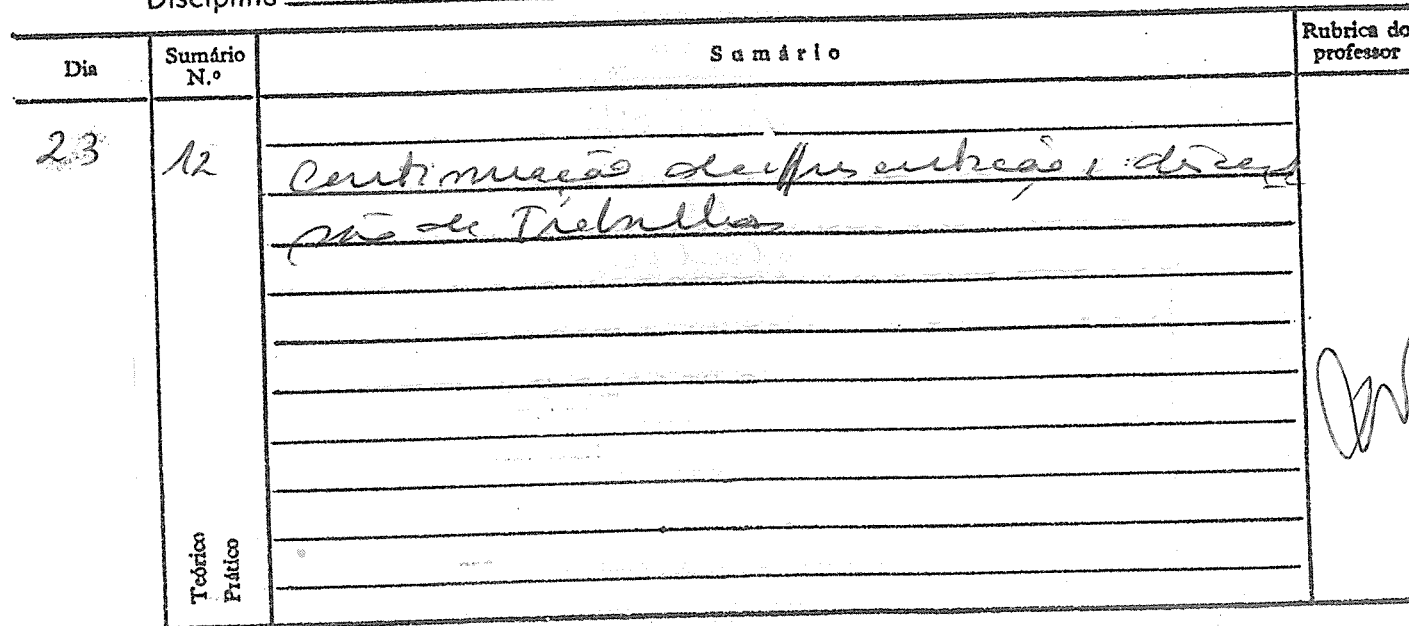 Disciplina
Dia
Sumário N.º
Sumário
Rubrica do professor
23
12
Continuação da apresentação e discus
são de Trabalhos
Teórico
Prático